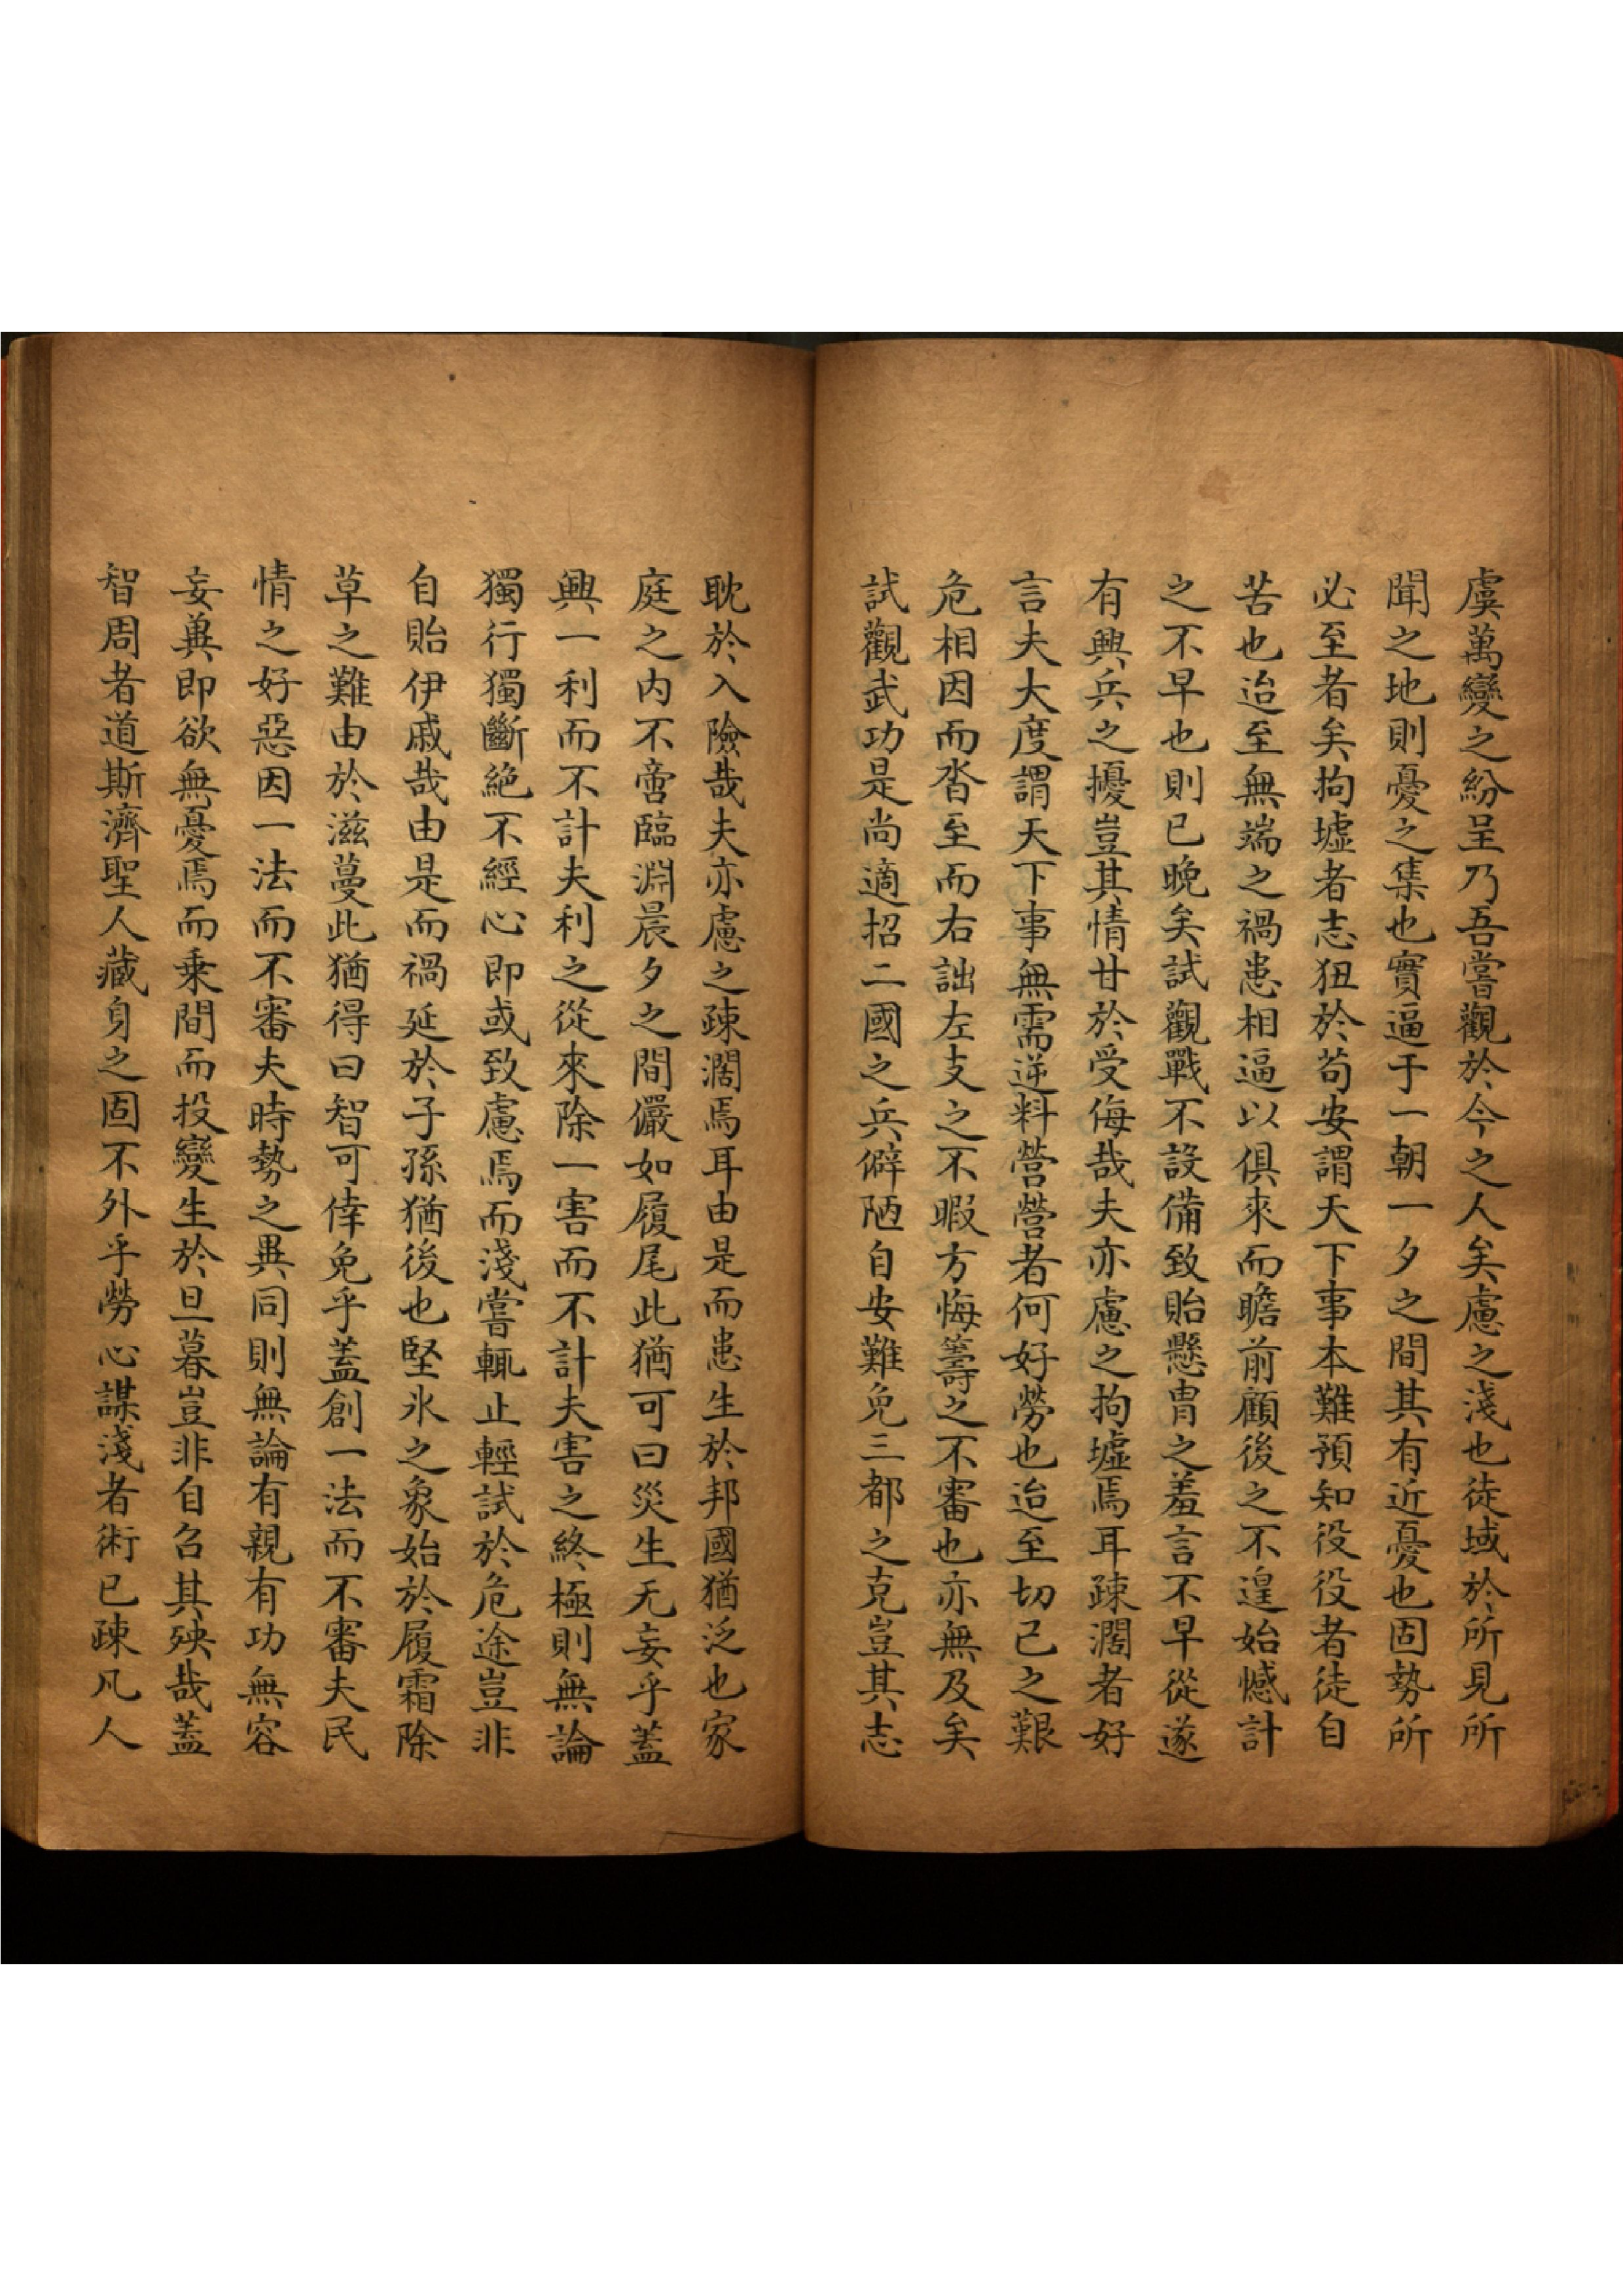 虞萬變之紛呈乃吾嘗觀於今之人矣慮之淺也徒域於所見所
聞之地則憂之集也實逼于一朝一夕之間其有近憂也固勢所
必至者矣拘墟者志狃於苟安謂天下事本難預知役役者徒自
苦也迨至無端之禍患相逼以俱來而瞻前顧後之不遑始憾計
之不早也則已晚矣試觀戰不設備致貽懸冑之羞言不早從遂
有興兵之擾豈其情甘於受侮哉夫亦慮之拘墟焉耳疎濶者好
言夫大度謂天下事無需逆料營營者何好勞也迨至切己之艱
危相因而沓至而右詘左支之不暇方悔籌之不審也亦無及矣
試觀武功是尚適招二國之兵僻陋自安難免三都之克豈其志
耽於入險哉夫亦慮之疎濶焉耳由是而患生於邦國猶泛也家
庭之内不啻臨淵晨夕之間儼如履尾此猶可曰災生无妄乎蓋
興一利而不計夫利之從來除一害而不計夫害之終極則無論
獨行獨斷絶不經心即或致慮焉而淺嘗輒止輕試於危途豈非
自貽伊戚哉由是而禍延於子孫猶後也堅氷之象始於履霜除
草之難由於滋蔓此猶得曰智可倖免乎蓋創一法而不審夫民
情之好惡因一法而不審夫時勢之異同則無論有親有功無容
妄兾即欲無憂焉而乘間而投變生於旦暮豈非自召其殃哉蓋
智周者道斯濟聖人藏身之固不外乎勞心謀淺者術已疎凡人